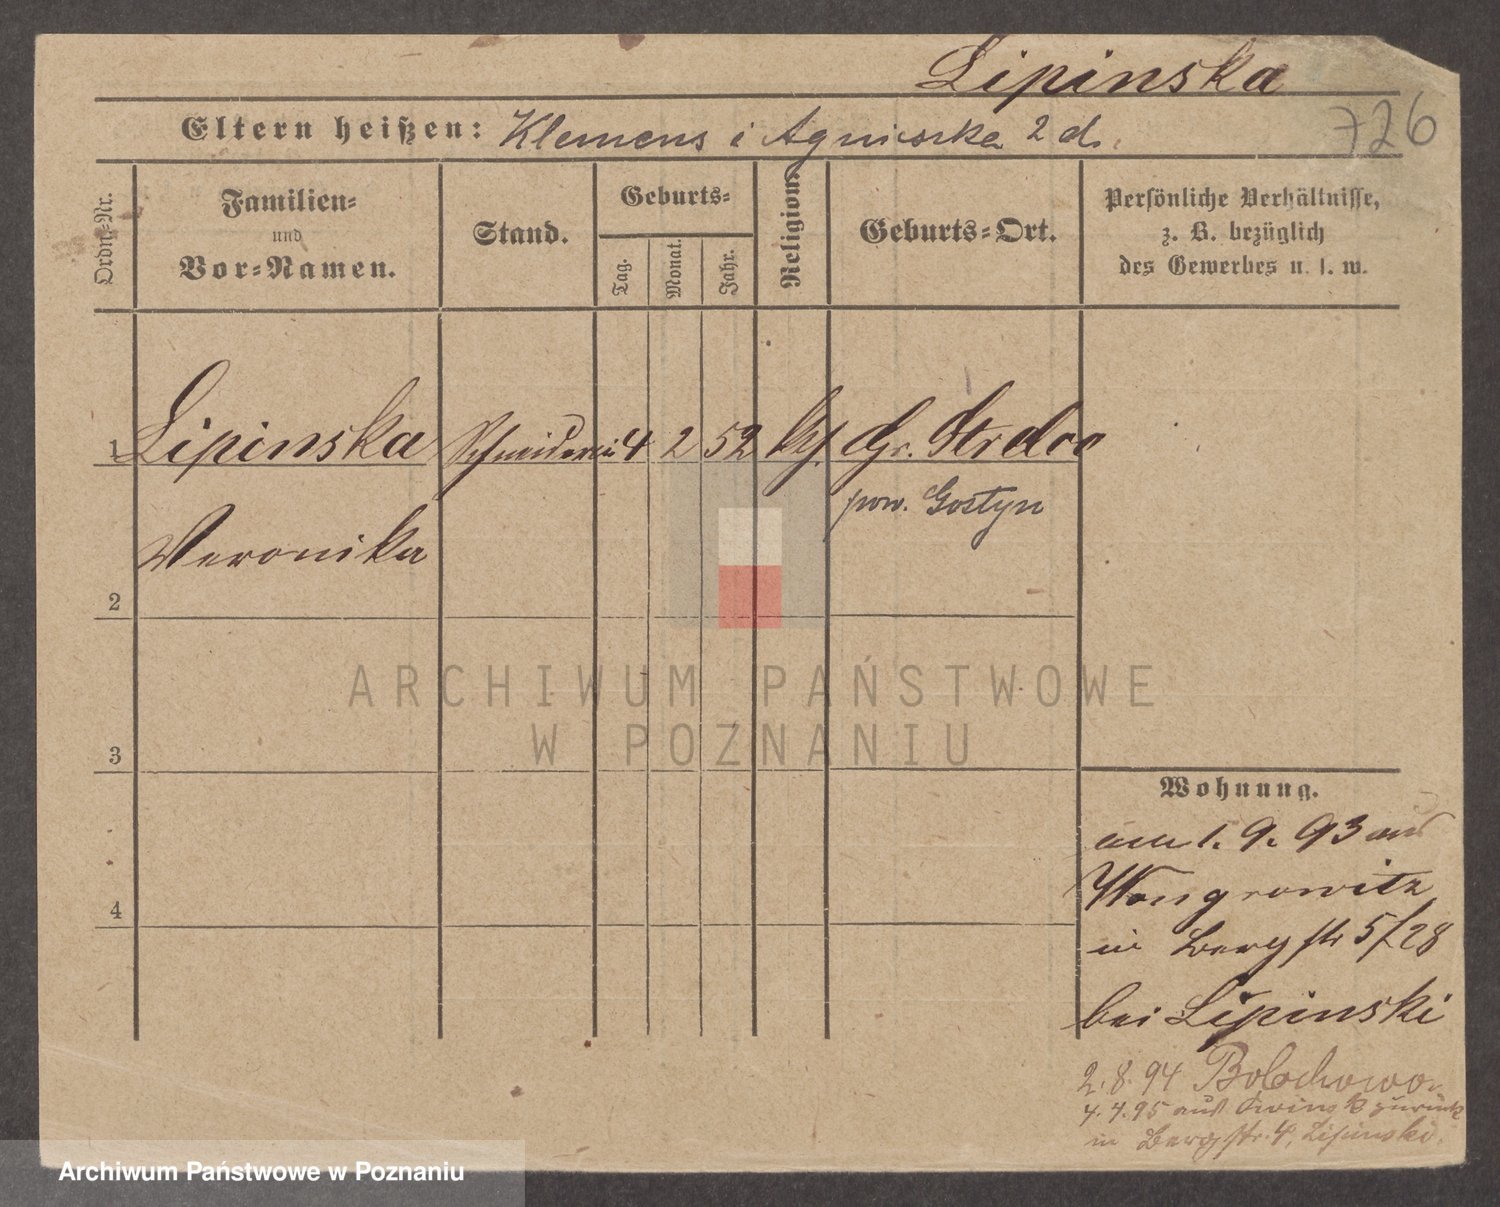 Lipinska
726
Eltern heißen: Klemens i Agnieszka 2 d.
Ordn.-Nr.
Familien-
und
Vor-Namen.
Stand.
Geburts-
Tag.
Monat.
Jahr.
Religion.
Geburts-Ort.
Persönliche Verhältnisse,
z. B. bezüglich
des Gewerbes u. s. w.
1 Lipinska Schneiderin 4 2 52 Gr.
pow. Gostyn
Veronika
2
3
4
Wohnung.
am 1. 9. 93 aus
Wongrowitz
in Bergstr 5/28
bei Lipinski
2. 8. 94 Bolechowo
4. 4. 95 aus zurück
in Bergstr. 4, Lipinski.
ARCHIWUM PAŃSTWOWE
W POZNANIU
Archiwum Państwowe w Poznaniu